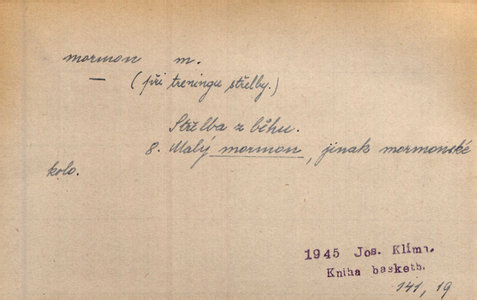 mormon m.
(při treningu střelby.)
Střelba z běhu.
8. Malý mormon, jinak mormonské
kolo.
1945 Jos. Klíma.
Kniha basketb.
141, 19